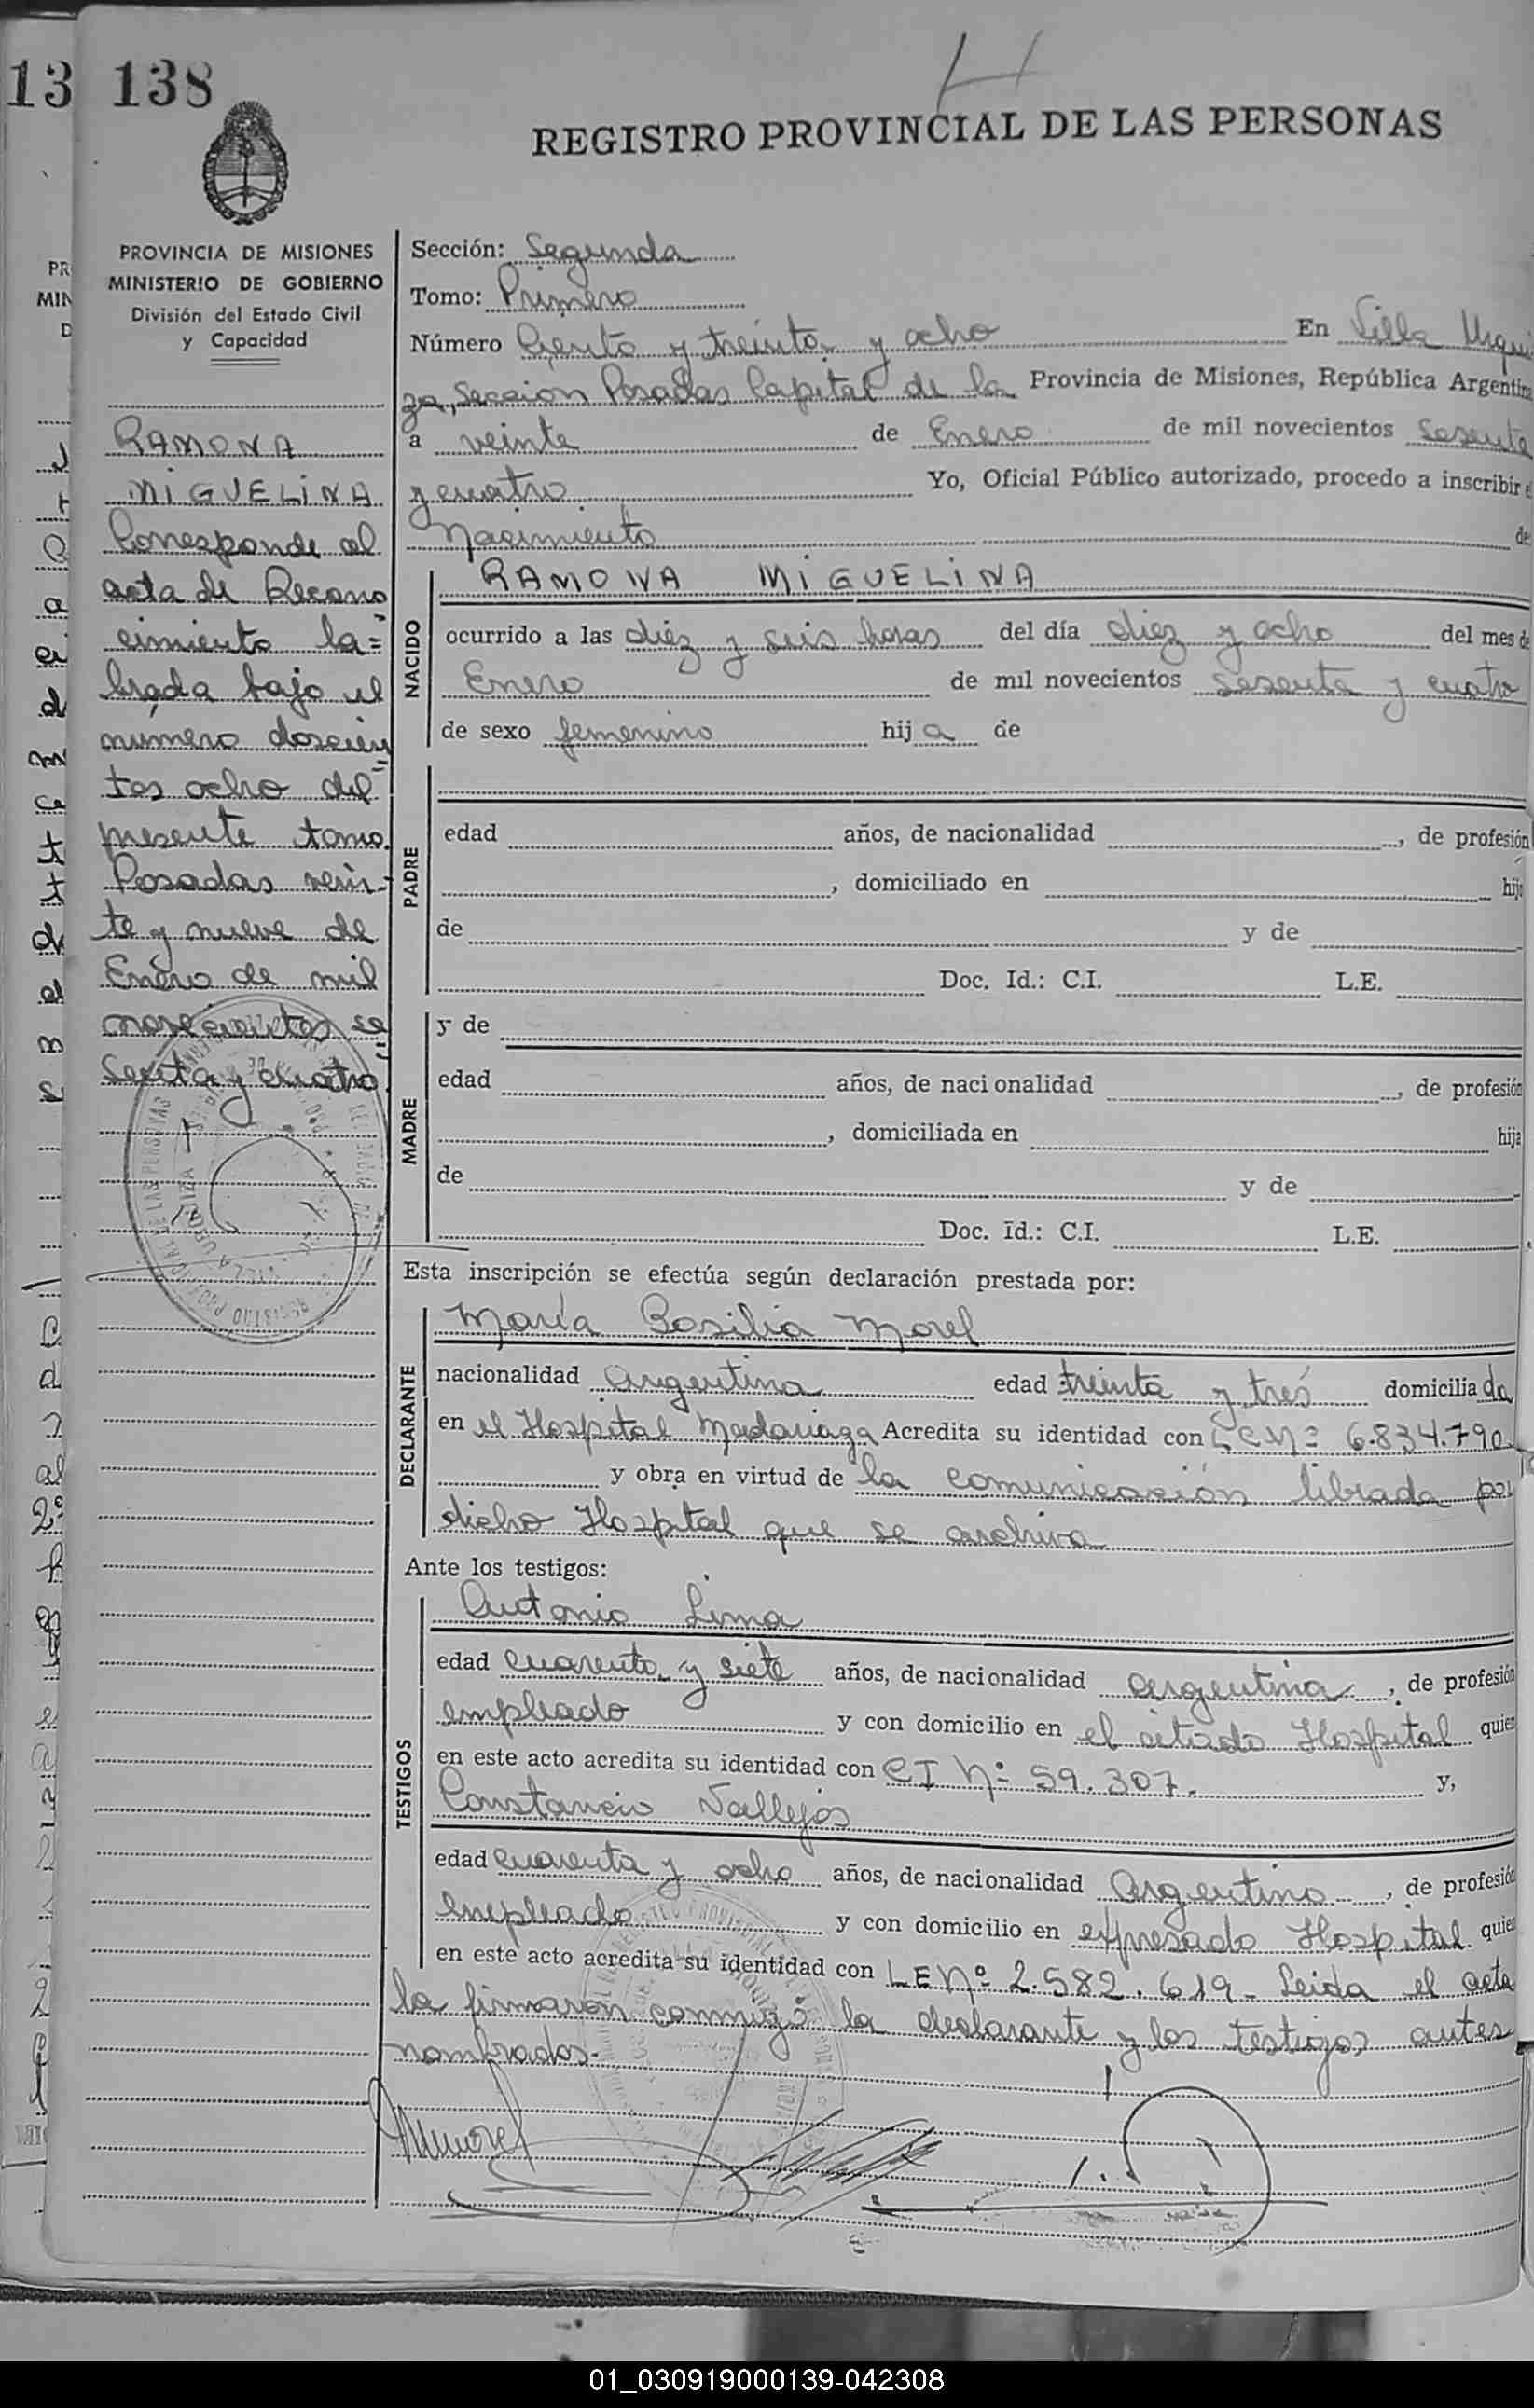 138
REGISTRO PROVINCIAL DE LAS PERSONAS
PROVINCIA DE MISIONES
MINISTERIO DE GOBIERNO
División del Estado Civil
y Capacidad
RAMONA
MIGUELINA
Corresponde al
acta de Recono
cimiento la=
brada bajo el
numero doscien
tos ocho del
presente tomo.
Posadas vein-
te y nueve de
Enero de mil
novecientos se
senta y cuatro.
Sección: Segunda
Tomo: Primero
Número Ciento y treinta y ocho En Villa Urqui
za, Sección Posadas Capital de la Provincia de Misiones, República Argentina
a veinte de Enero de mil novecientos Sesenta
y cuatro Yo, Oficial Público autorizado, procedo a inscribir el
Nacimiento de
NACIDO
RAMONA MIGUELINA
ocurrido a las diez y seis horas del día diez y ocho del mes de
Enero de mil novecientos sesenta y cuatro
de sexo femenino hija de
PADRE
edad años, de nacionalidad , de profesión
, domiciliado en hijo
de y de
Doc. Id.: C.I. L.E.
MADRE
y de
edad años, de nacionalidad , de profesión
, domiciliada en hija
de y de
Doc. Id.: C.I. L.E.
Esta inscripción se efectúa según declaración prestada por:
DECLARANTE
María Basilia Morel
nacionalidad argentina edad treinta y tres domiciliada
en el Hospital Madariaga Acredita su identidad con LCNº 6.834.790
y obra en virtud de la comunicación librada por
dicho Hospital que se archiva
Ante los testigos:
TESTIGOS
Antonio Lima
edad cuarenta y siete años, de nacionalidad argentina, de profesión
empleado y con domicilio en el citado Hospital quien
en este acto acredita su identidad con CI Nº 59.307. y,
Constancio Vallejos
edad cuarenta y ocho años, de nacionalidad Argentino, de profesión
empleado y con domicilio en expresado Hospital quien
en este acto acredita su identidad con LENº 2.582.619- Leida el acta
la firmaron conmigo la declarante y los testigos antes
nombrados.
01_030919000139-042308